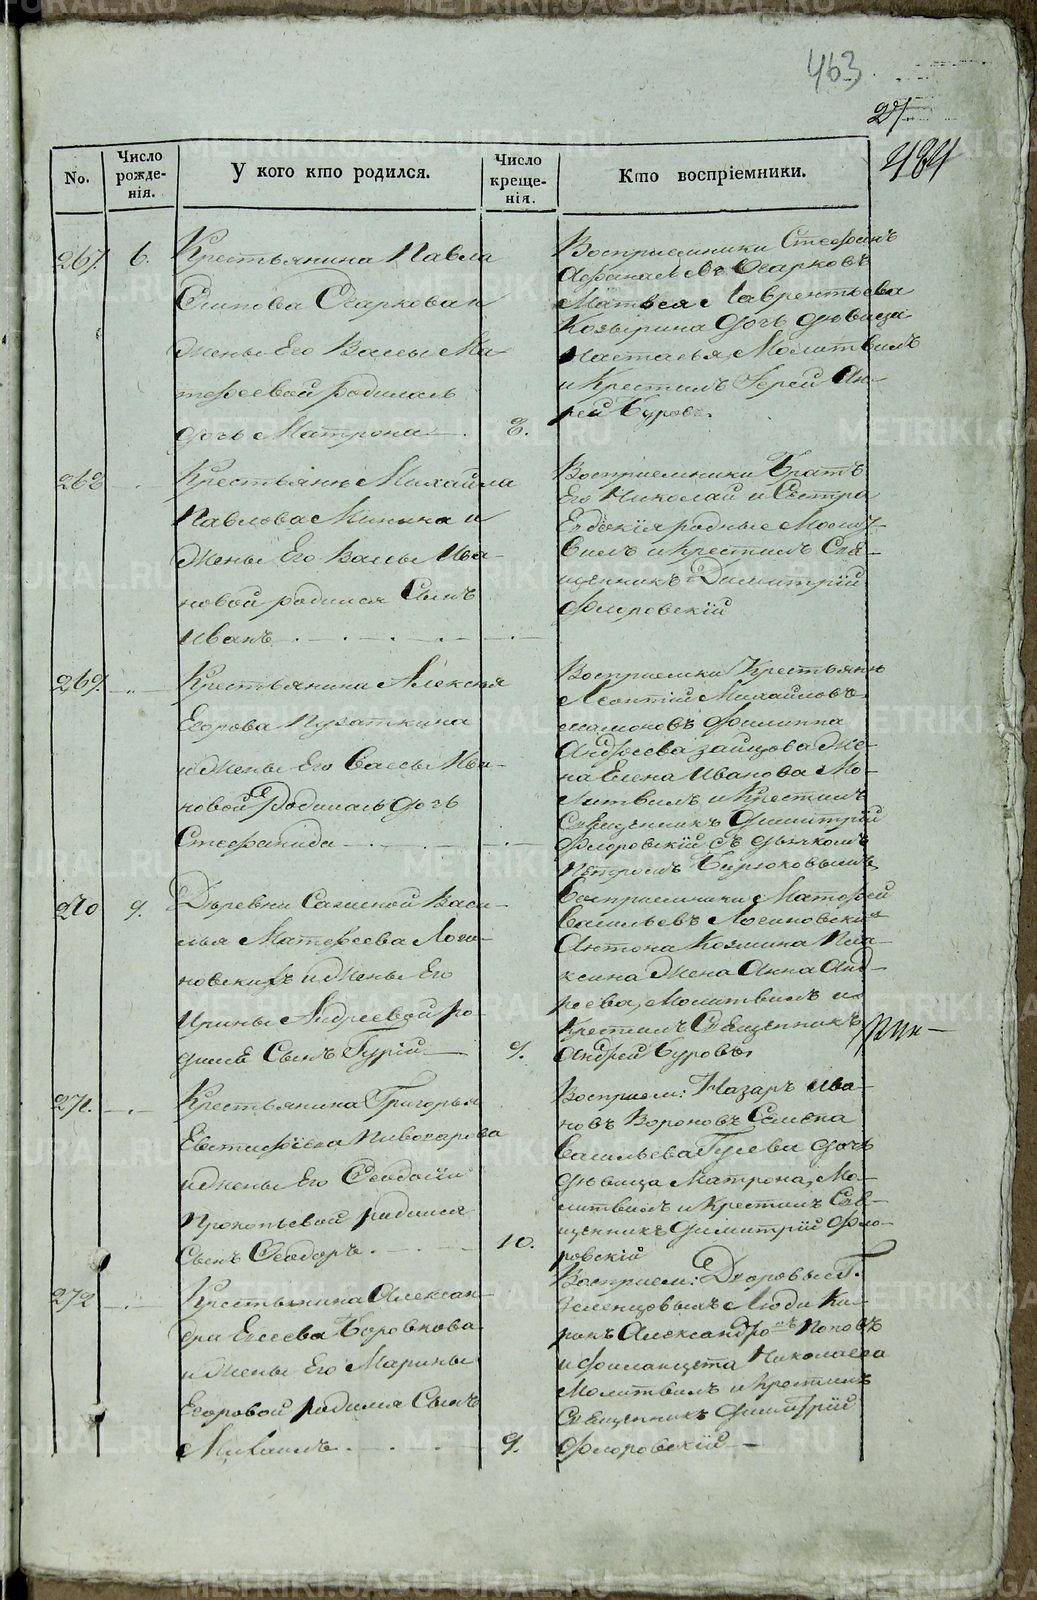 463
484
No.
Число рожде-нія.
У кого кто родился.
Число креще-нія.
Кто воспріемники.
267. 6.
Крестьянина Павла
Жены Его Вассы Ма-
тфеевой родилась
дочь Матрона 8.
Восприемники Стефанъ
Лаврентьева
Козырина дочь девица
Настасья, Молитвилъ
и Крестилъ Іерей Ан-
рей Буровъ.
268
Крестьянина Михайла
Павлова Минина и
Жены Его Вассы Ива-
новой родился Сынъ
Иванъ
Восприемники Братъ
Его Николай и Сестра
Евдокія родные Молит-
вилъ и Крестилъ Свя-
щенникъ Димитрій
Флоровскій
269.
Крестьянина Алексея
Егорова Пузаткина
и Жены Его Вассы Ива-
новой Родилась дочь
Стефанида
Крестьянинъ
Леонтій Михайловъ
Мамоновъ Филиппа
Андреева Зайцова Же-
на Елена Иванова Мо-
литвилъ и Крестилъ
Священникъ Димитрій
Флоровскій съ дьячкомъ
Петромъ Бирюковымъ
270 9.
Деревни Васи-
лья Матфеева Логи-
новскихъ и Жены Его
Ирины Андреевой ро-
дился Сынъ Гурій 9.
Восприемники Матфей
Васильевъ Логиновскихъ
Антона Козмина
Жена Анна Анд-
реева, Молитвилъ и
Крестилъ Священникъ
Андрей Буровъ.
271.
Крестьянина Григорья
Евстифеева Пивоварова
и Жены Его Феодосіи
Прокопьевой родился
Сынъ Феодоръ. 10.
Восприем: Назаръ Ива-
новъ Вороновъ Семена
Васильева Гусева дочь
девица Матрона, Мо-
литвилъ и Крестилъ Свя-
щенникъ Димитрій Фло-
ровскій
272
Крестьянина Алексан-
дра Елесева Боровкова
и Жены Его Марины
Егоровой родился Сынъ
Михаилъ. 9.
Восприем: Дворовые Г.
Зеленцовыхъ Люди Ки-
рикъ Александровъ Поповъ
и Филанцета Николаева
Молитвилъ и Крестилъ
Священникъ Димитрій
Флоровскій
METRIKI.GASO-URAL.RU